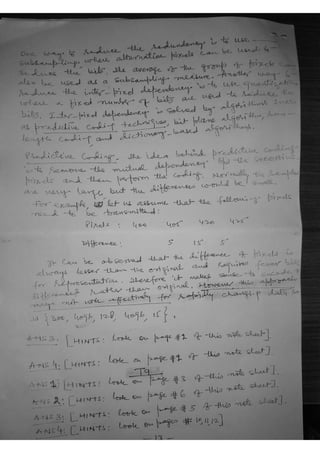 One way to reduce the redundancy is to use
subsampling, where alternative pixels can be used to
reduce the bits. The average of the group of pixels can
also be used as a subsampling measure. Another way to
reduce the inter-pixel dependency is to use quantization,
where a fixed number of bits are used to reduce the
bits. Inter pixel dependency is solved by algorithms such
as predictive coding techniques, bit plane algorithm, run-
length coding and dictionary-based algorithms.
Predictive Coding - The idea behind predictive coding
is to remove the mutual dependency of the successive
pixels and then perform the coding. Normally the samples
are very large but the differences would be small.
For example, let us assume that the following pixels
need to be transmitted:
Pixels: 400 405 420 425
Difference: 5 15 5
It can be observed that the difference of pixels is
always lesser than the original and requires fewer bits
for representation. Therefore it makes sense to encode the
difference rather than original. However this approach
may not work effectively for rapidly changing data
{300, 4096, 128, 4096, 15}.
ANS3: [HINTS: Look on page #1 of this note sheet]
ANS4: [HINTS: Look on page #1 of this note sheet]
ANS1: [HINTS: Look on page #3 of this note sheet].
ANS2: [HINTS: Look on page #6 of this note sheet].
ANS3: [HINTS: Look on page #5 of this note sheet].
ANS4: [HINTS: Look on pages #10,11,12]